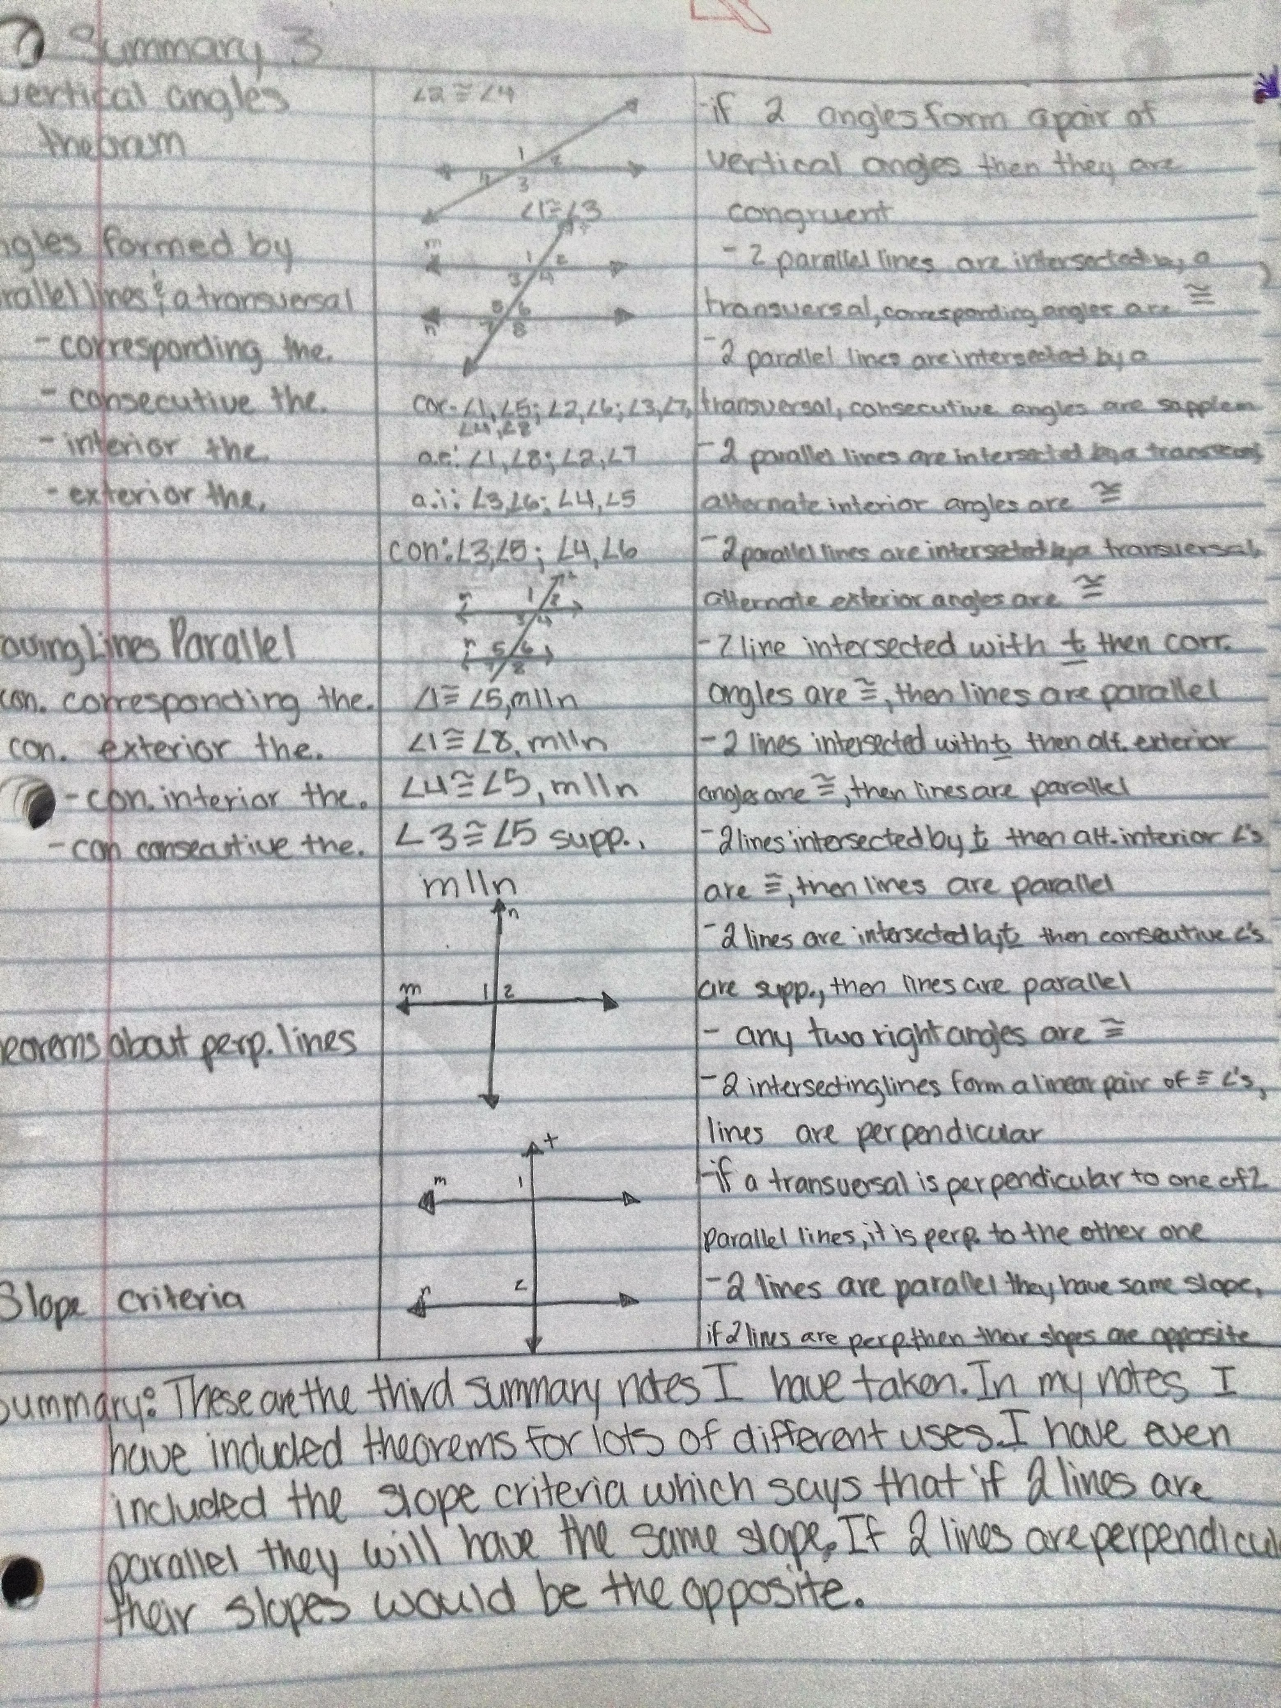 Summary 3
vertical angles
theorum
∠2≅∠4
1
2
4
3
∠1≅∠3
-if 2 angles form a pair of
vertical angles then they are
congruent
ngles formed by
rallel lines & a transversal
- corresponding the.
- consecutive the.
- interior the.
- exterior the.
m
1 2
3 4
5 6
n 7 8
cor-∠1,∠5; ∠2,∠6; ∠3,∠7,
∠4,∠8
a.e: ∠1,∠8; ∠2,∠7
a.i: ∠3,∠6; ∠4,∠5
con: ∠3,∠5; ∠4,∠6
- 2 parallel lines are intersected by a
transversal, corresponding angles are ≅
-2 parallel lines are intersected by a
transversal, consecutive angles are supplem
-2 parallel lines are intersected by a
alternate interior angles are ≅
-2 parallel lines are intersected by a transversal,
alternate exterior angles are ≅
oving Lines Parallel
con. corresponding the.
con. exterior the.
-con. interior the.
-con consecutive the.
m 1 2
3 4
5 6
7 8
∠1≅∠5, m||n
∠1≅∠8, m||n
∠4≅∠5, m||n
∠3≅∠5 supp.,
m||n
-2 line intersected with t then corr.
angles are ≅, then lines are parallel
-2 lines intersected with t then alt. exterior
angles are ≅, then lines are parallel
-2 lines intersected by t then alt. interior ∠'s
are ≅, then lines are parallel
-2 lines are intersected by t then consecutive ∠'s
are supp., then lines are parallel
eorems about perp. lines
n
m 1 2
- any two right angles are ≅
-2 intersecting lines form a linear pair of ≅ ∠'s,
lines are perpendicular
t
m 1
n 2
-if a transversal is perpendicular to one of 2
parallel lines, it is perp. to the other one
Slope criteria
-2 lines are parallel they have same slope,
if 2 lines are perp. then thar slopes are opposite
Summary: These are the third summary notes I have taken. In my notes I
have included theorems for lots of different uses. I have even
included the slope criteria which says that if 2 lines are
parallel they will have the same slope. If 2 lines are perpendicul
their slopes would be the opposite.